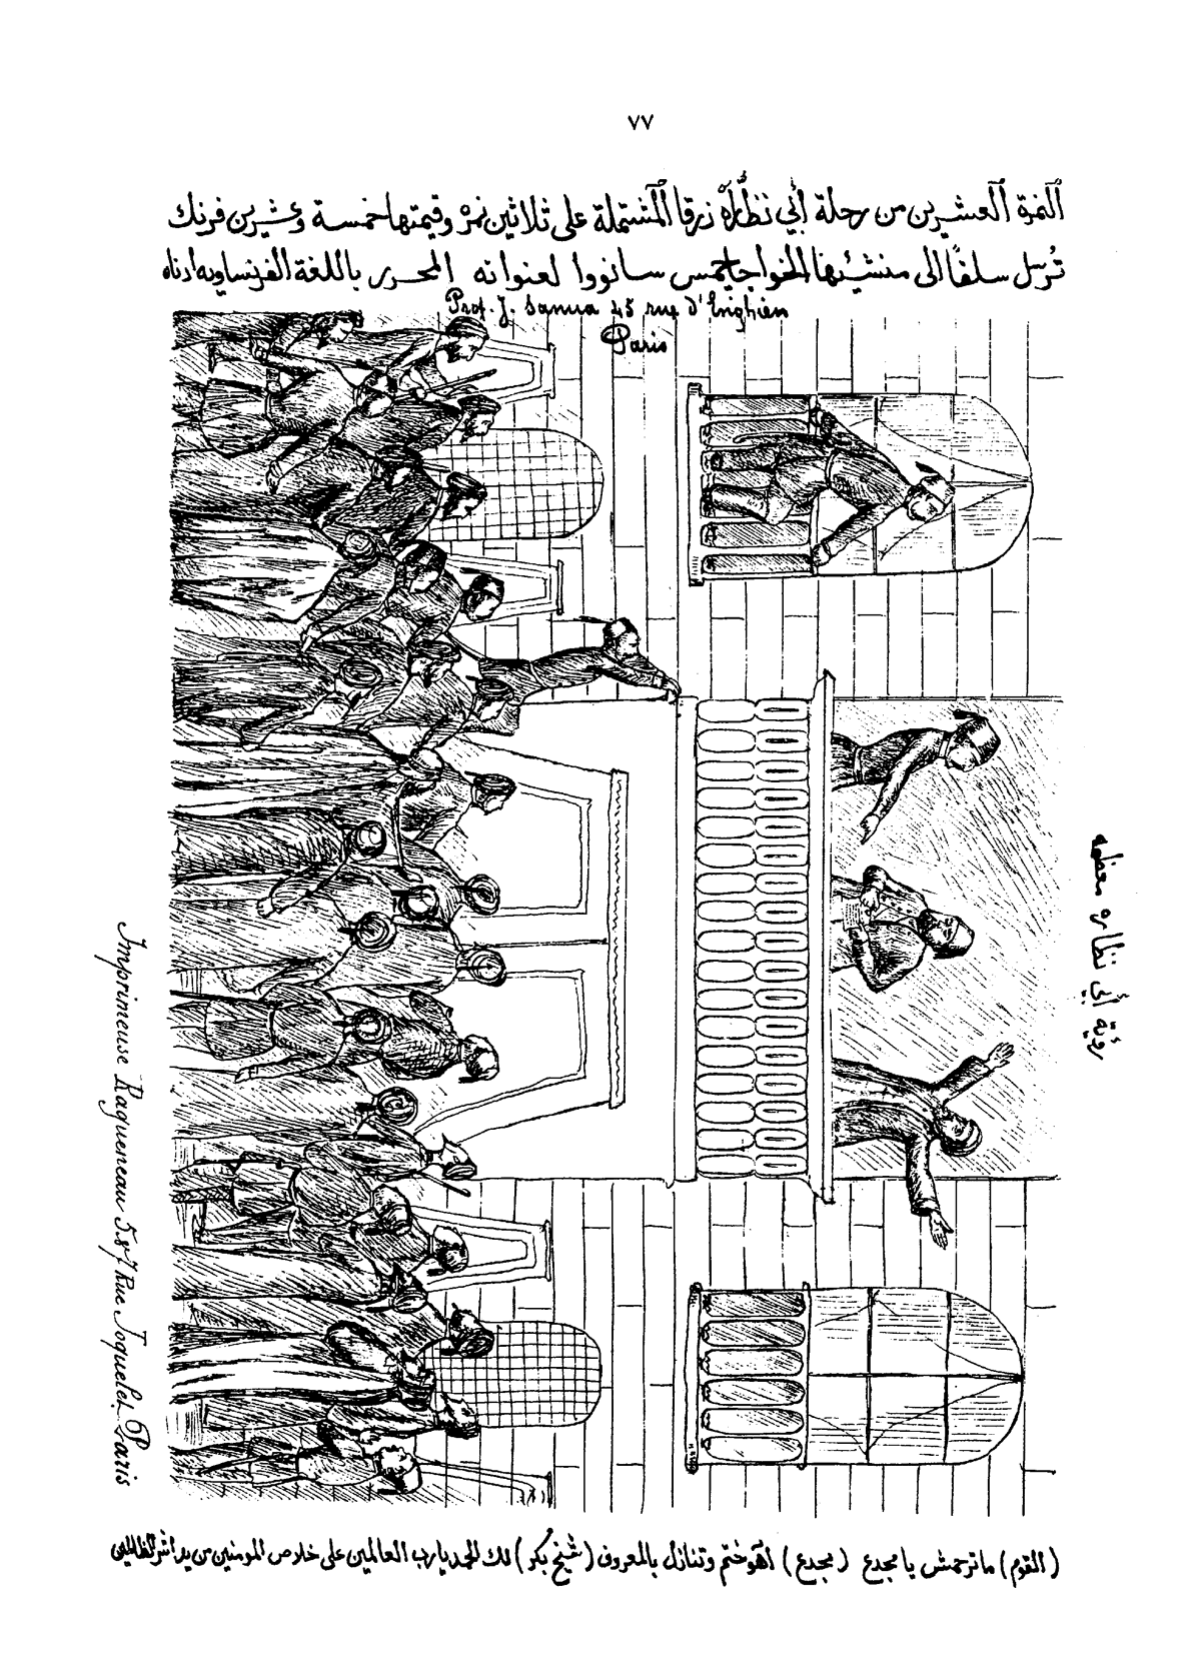 ٧٧
النمرة العشرين من رحلة أبي نظّارة زرقا المشتملة على ثلاثين نمرة وقيمتها خمسة وعشرين فرنك
تُرسل سلفًا الى منشئها الخواجا جمس سانووا لعنوانه المحرر باللغة الفرنساويه ادناه
Prof. J. Sanua 43 rue d'Enghien
Paris
رؤية أبي نظاره معظمه
Imprimeuse Ragueneau Rue Joquelet Paris
(القوم) ماترحمش يا مجدع (مجدع) اهو ختم وتنازل بالمعروف (شيخ بكر) لك الحمد يا رب العالمين على خلاص المومنين من يد اشر الظالمين